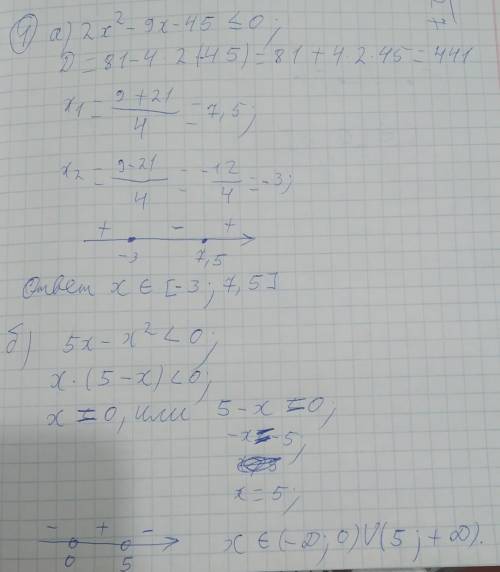 ① а) 2x² - 9x - 45 ≤ 0;
D = 81 - 4 2(-45) = 81 + 4.2.45 = 441
x₁ = (9+21)/4 = 7,5;
x₂ = (9-21)/4 = -12/4 = -3;
+ - +
-3 7,5
Ответ x ∈ [-3; 7,5]
б) 5x - x² < 0;
x · (5 - x) < 0;
x = 0, или 5 - x = 0;
-x = -5,
x = 5;
- + -
0 5
x ∈ (-∞; 0) ∪ (5; +∞).